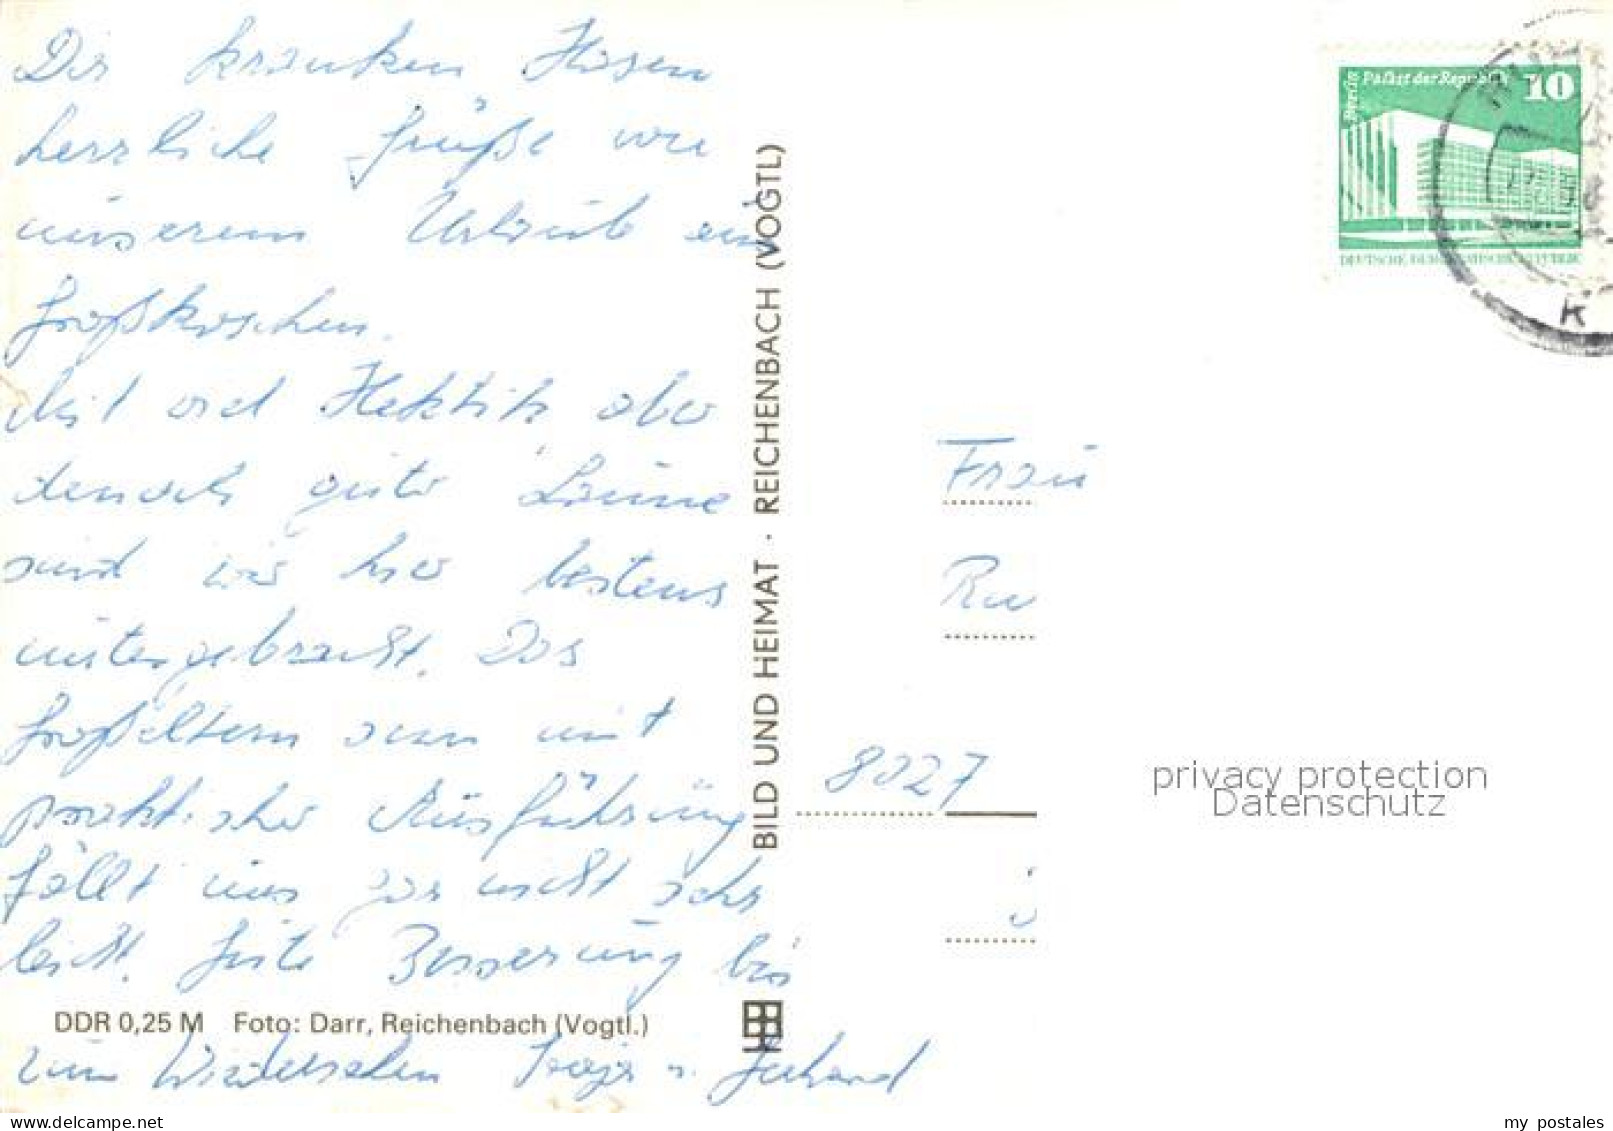 Die kranken Hasen
herzliche Grüße von
unserem Urlaub in
Großkoschen.
Mit viel Hektik aber
dennoch guter Laune
sind wir hier bestens
untergebracht. Das
Großeltern sein mit
praktischer Ausführung
fällt uns gar nicht sehr
leicht. Gute Besserung bis
zum Wiedersehen u. Gerhard
DDR 0,25 M Foto: Darr, Reichenbach (Vogtl.)
BILD UND HEIMAT · REICHENBACH (VOGTL)
Berlin Palast der Republik 10
DEUTSCHE DEMOKRATISCHE REPUBLIK
K
Frau
Ru
8027
privacy protection
Datenschutz
my postales